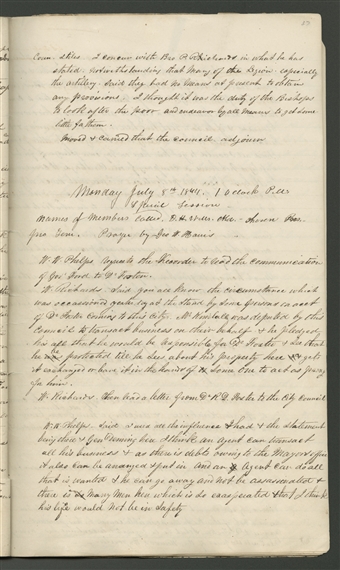 Coun. stiles I concur with Bro P. Richards in what he has
stated notwithstanding that many of the Legion especially
the artillery. Said they had no means at present to obtain
any provisions. I thought it was the duty of the Bishops
to look after the poor and endeavor by all means to get some
little for them.
Moved & carried that the council adjourn
Monday July 8th 1844. 1 o'clock P.M.
Special Session
Names of Members called.
pro Tem. Prayer by Geo W. Harris
W. W. Phelps requests the Recorder to read the communication
of Gov Ford to Dr Foster.
W. Richards Said you all know the circumstance which
was occasioned yesterday at the stand by some persons on acct
of Dr Foster coming to this city. Mr Kimball was deputed by this
council to transact business on their behalf & he pledged
his all that he would be responsible for Dr Foster & see that
he be protected till he sees about his property here & gets
it exchanged or have it in the hands of some one to act as proxy
for him.
W. Richards then read a letter from Dr R. D. Foster to the City Council
W. W. Phelps. Said I was at the conference & heard the statement
being there & Gen Deming here & think an agent can transact
all his business & as there is debts owing to the Mayor's office
it also can be arranged & put in and an Agent can do all
that is wanted & he can go away and not be assassinated &
there is many men here which is so exasperated that I think
his life would not be in safety